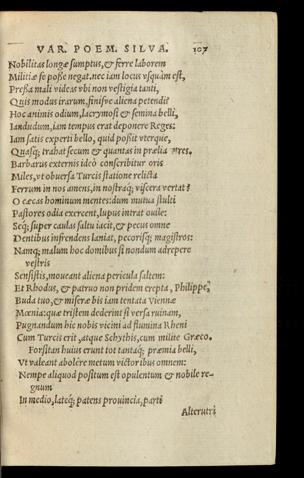 VAR. POEM. SILVA. 107
Nobilitas longæ sumptus, & ferre laborem
Militiæ se posse negat. nec iam locus vsquàm est,
Pressa mali videas vbi non vestigia tanti,
Quis modus irarum, finisve aliena petendi?
Hoc animis odium, lacrymosi & semina belli,
Iandudum, iam tempus erat deponere Reges:
Iam satis experti bello, quid possit vterque,
Quasq; trahat secum & quantas in prælia vires.
Barbarus externis ideò conscribitur oris
Miles, vt obuersa Turcis statione relicta
Ferrum in nos amens, in nostraq; viscera vertat?
O cæcas hominum mentes: dum mutua stulti
Pastores odia exercent, lupus intrat ouile:
Seq; super caulas saltu iacit, & pecus omne
Dentibus infrendens laniat, pecorisq; magistros:
Namq; malum hoc domibus si nondum adrepere
vestris
Sensistis, moueant aliena pericula saltem:
Et Rhodus, & patruo non pridem erepta, Philippe,
Buda tuo, & miseræ bis iam tentata Viennæ
Mœnia: quæ tristem dederint si versa ruinam,
Pugnandum hic nobis vicini ad flumina Rheni
Cum Turcis erit, atque Schythis, cum milite Græco.
Forsitan huius erunt tot tantaq; præmia belli,
Vt valeant abolêre metum victoribus omnem:
Nempe aliquod positum est opulentum & nobile re-
gnum
In medio, lateq; patens prouincia, parti
Alterutri